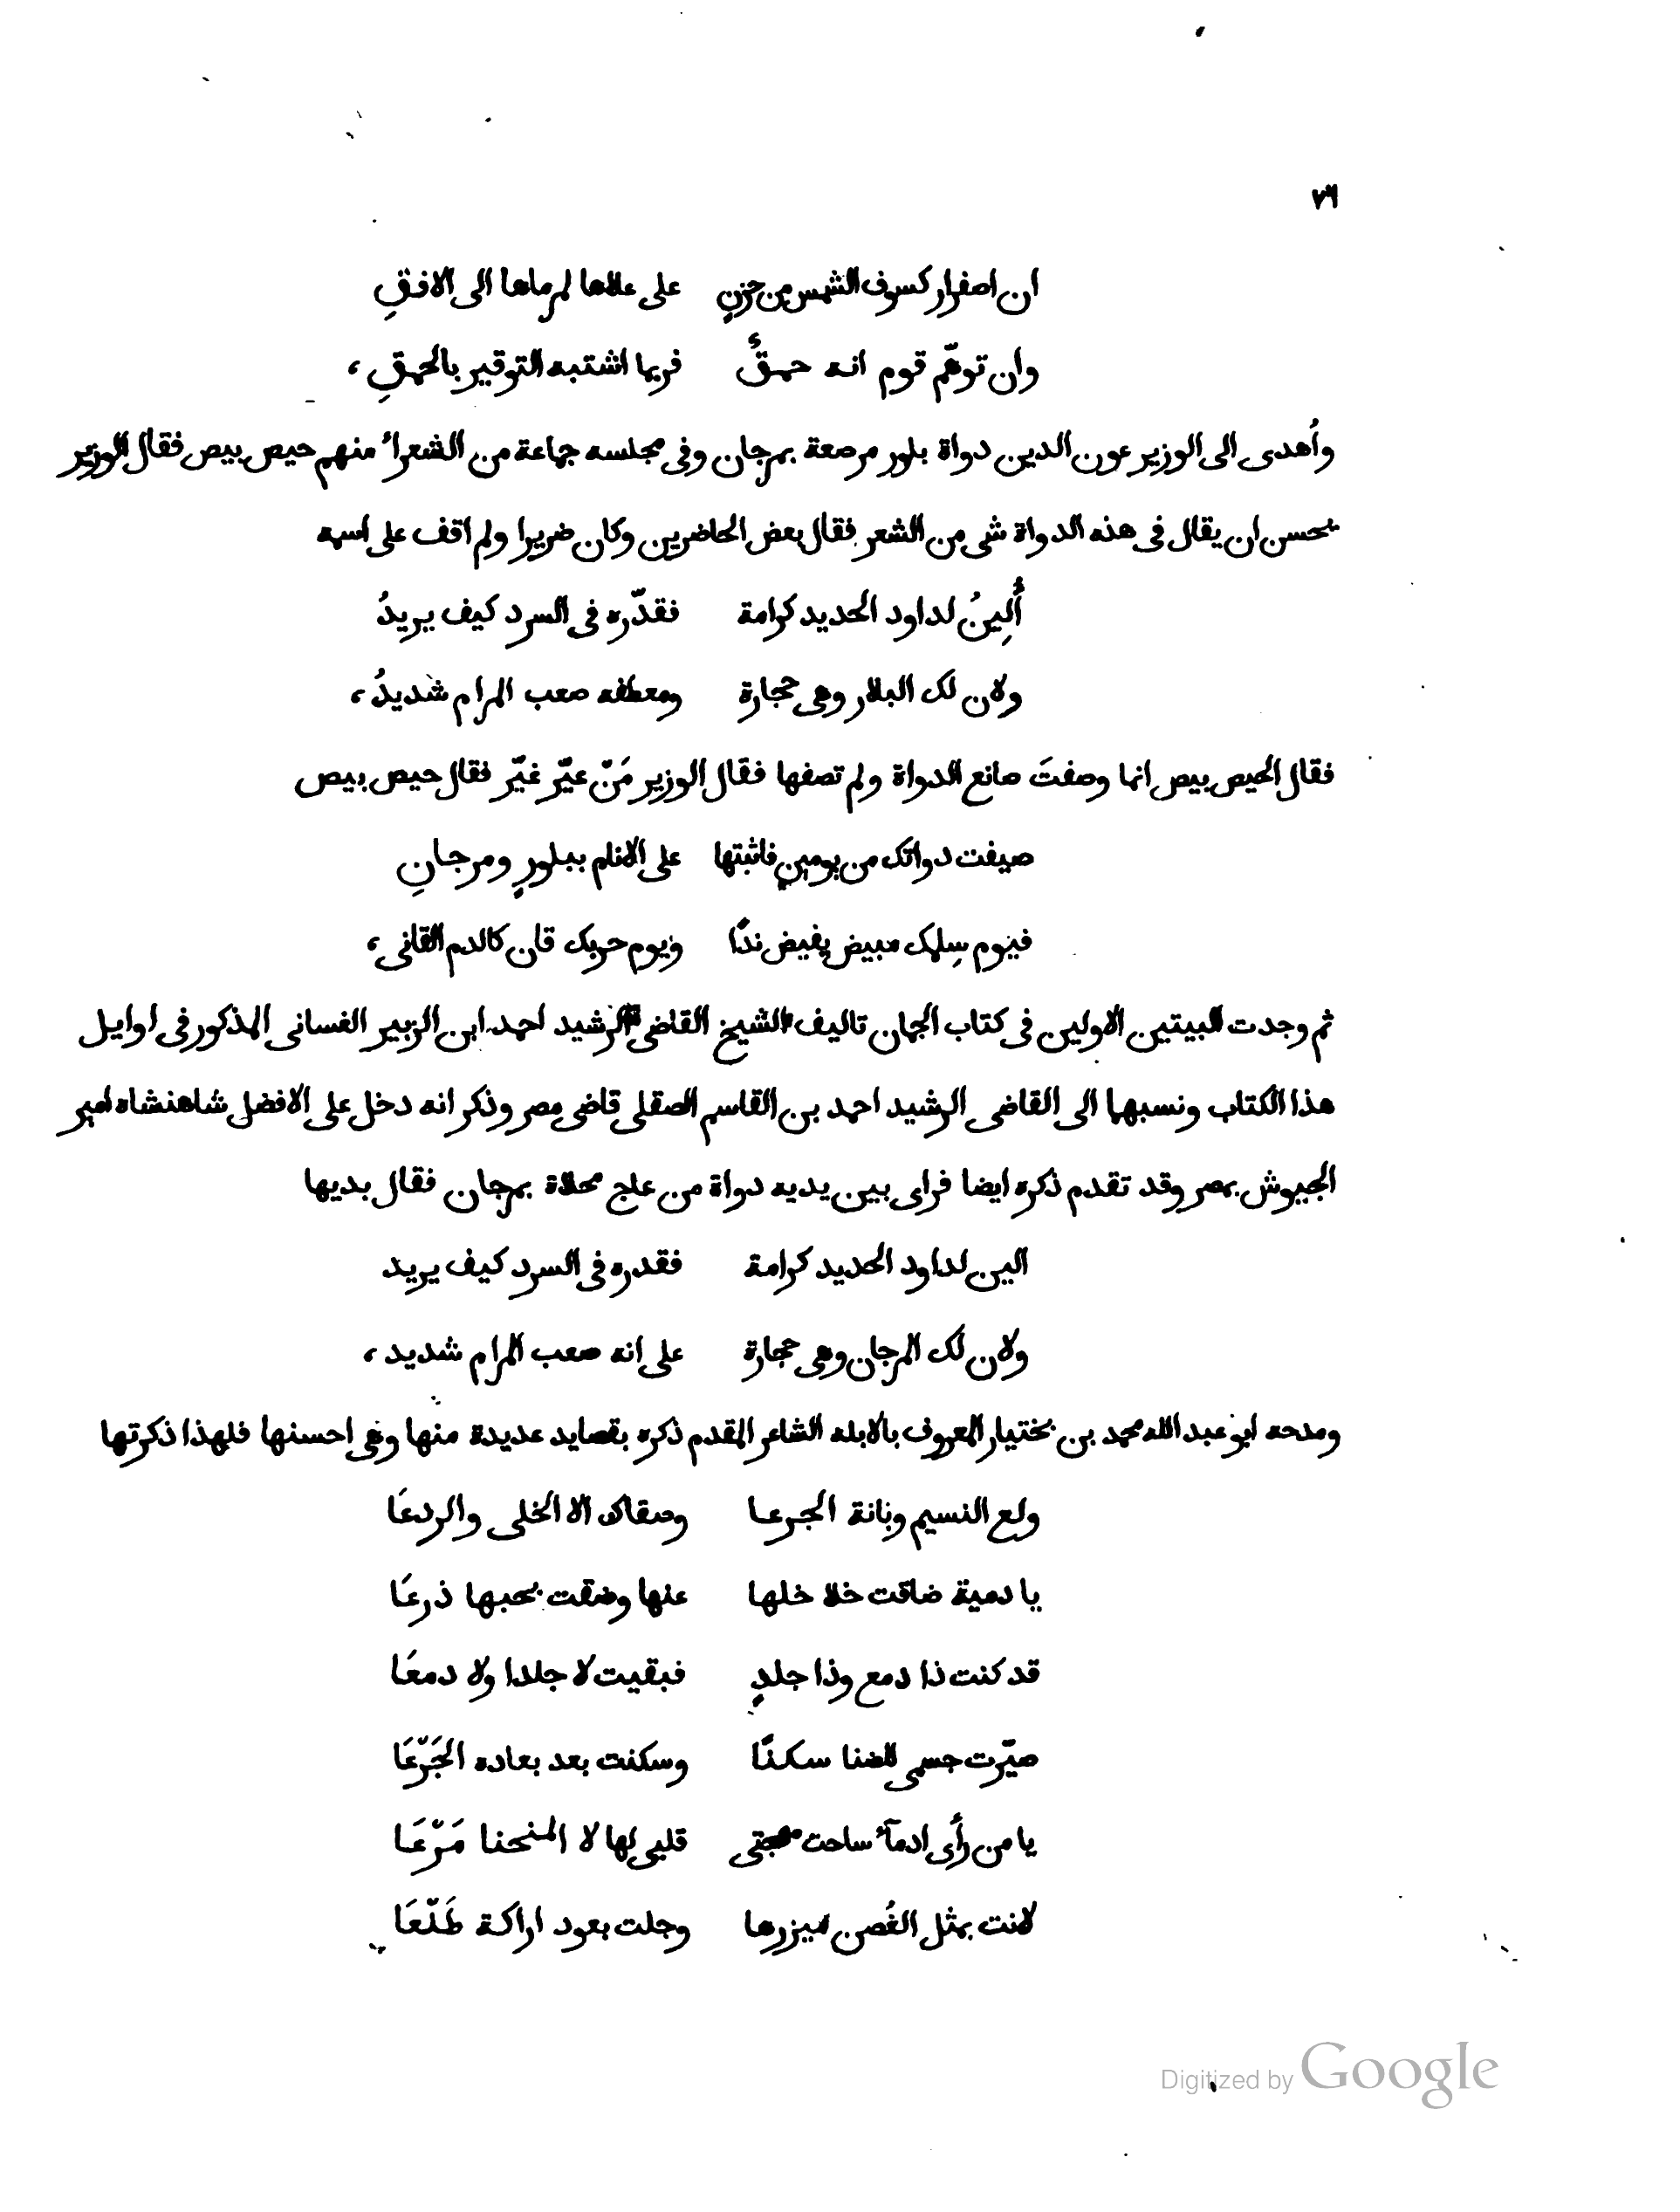 ٧٦
ان اصفرار كسوف الشمس من حزنٍ على علاها لمرماها الى الافقِ
وان توهّم قوم انه حمقٌ فربما اشتبه التوقير بالحمقِ،
وأُهدى الى الوزير عون الدين دواة بلور مرصعة بمرجان وفى مجلسه جماعة من الشعراء منهم حيص بيص فقال الوزير
يحسن ان يقال فى هذه الدواة شى من الشعر فقال بعض الحاضرين وكان ضريرا ولم اقف على اسمه
أُلِينُ لداود الحديد كرامة فقدّره فى السرد كيف يريدُ
ولان لك البلار وهى حجارة ومعطفه صعب المرام شديدُ،
فقال الحيص بيص انما وصفتَ صانع الدواة ولم تصفها فقال الوزير مَنّ عيّر غيّر فقال حيص بيص
صيغت دواتك من يومين فاثبتها على الانام ببلورٍ ومرجانِ
فيوم سِلمك مبيض يفيض ندًا ويوم حربك قان كالدم القانى،
ثم وجدت البيتين الاولين فى كتاب الجنان تاليف الشيخ القاضى الرشيد احمد ابن الزبير الغسانى المذكور فى اوايل
هذا الكتاب ونسبهما الى القاضى الرشيد احمد بن القاسم الصقلى قاضى مصر وذكر انه دخل على الافضل شاهنشاه امير
الجيوش بمصر وقد تقدم ذكره ايضا فراى بين يديه دواة من عاج محلاة بمرجان فقال بديها
الين لداود الحديد كرامة فقدره فى السرد كيف يريد
ولان لك المرجان وهى حجارة على انه صعب المرام شديد،
ومدحه ابو عبد الله محمد بن بختيار المعروف بالابله الشاعر المقدم ذكره بقصايد عديدة منها وهى احسنها فلهذا ذكرتها
ولع النسيم وبانة الجرعا وصفاك الا الخلى والردعَا
يا دمية ضاقت خلا خلها عنها وضقت بحبها ذرعَا
قد كنت ذا دمع وذا جلدٍ فبقيت لا جلدا ولا دمعَا
صيّرت جسمى للضنا سكنًا وسكنت بعد بعاده الجَرّعَا
يا من رأى ادمآء ساحت مهجتى قلبى لها لا المنحنا مَرّعَا
لانت بمثل الغُصن ميزرها وجلت بعود اراكة طَلّعَا
Digitized by Google